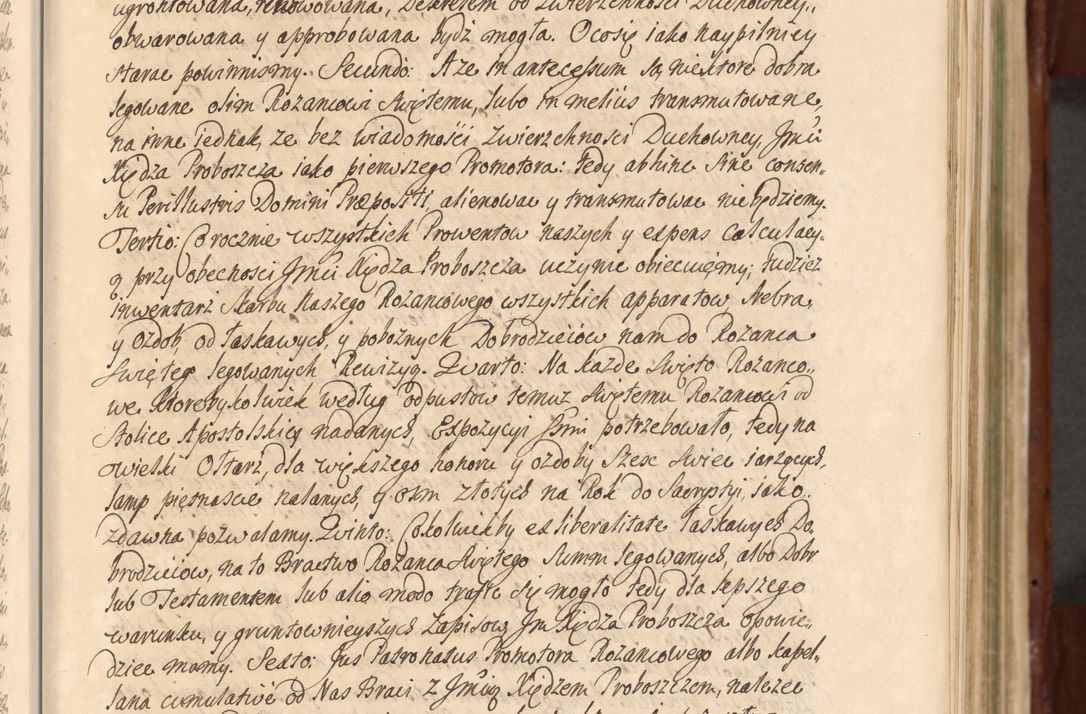 ugrontowana, renowowana, Dekretem od Zwierzchności Duchowney,,
obwarowana y approbowana bydz mogła. Ocosię iako naypilniey
starac powinnismy. Secundó: A ze in antecessum są niektore dobra
legowane olim Rozancowi Swiętemu, lubo in melius transmutowane,
na inne iednak, ze bez wiadomości Zwierzchności Duchowney, Jmći
Xiędza Proboszcza iako pierwszego Promotora: tedy abhinc sine consen,,
su Perillustris Domini Præpositi, alienowac y transmutowac nie będziemy.
Tertio: Corocznie wszystkich Prowentow naszych y expens Calculacy,,
ą przy obecnosci Jmći Xiędza Proboszcza uczynic obiecuięmy; tudziez
inwentarz Skarbu naszego Rozancowego wszystkich apparatow srebra,
y ozdob, od łaskawych, y poboznych Dobrodzieiów nam do Rozanca
Swiętego legowanych Rewizyą. Quarto: Na kazde swięto Rozanco,,
we ktorebykolwiek według odpustow temuz Swiętemu Rozancowi od
Stolice Apostolskiey nadanych, Expozycyi SSmi potrzebowało, tedy na
wielki Ołtarz, dla większego honoru y ozdoby szesc swiec iarzących,
lamp piętnascie nalanych, y osm złotych na Rok do Sacrystyi, iako
zdawna pozwalamy. Quinto: Cokolwiekby ex liberalitate łaskawych Do,,
brodzieiow, na to Bractwo Rozanca Swiętego summ legowanych, albo Dobr
lub Testamentem lub alio modo trafic się mogło tedy dla lepszego
warunku, y gruntownieyszych Zapisow Jm Xiędza Proboszcza opowie,,
dziec mamy. Sexto: Jus Patronatus Promotora Rozancowego albo kapel,,
lana cumulativè od Nas Braci z Jmcią Xiędzem Proboszczem, nalezec